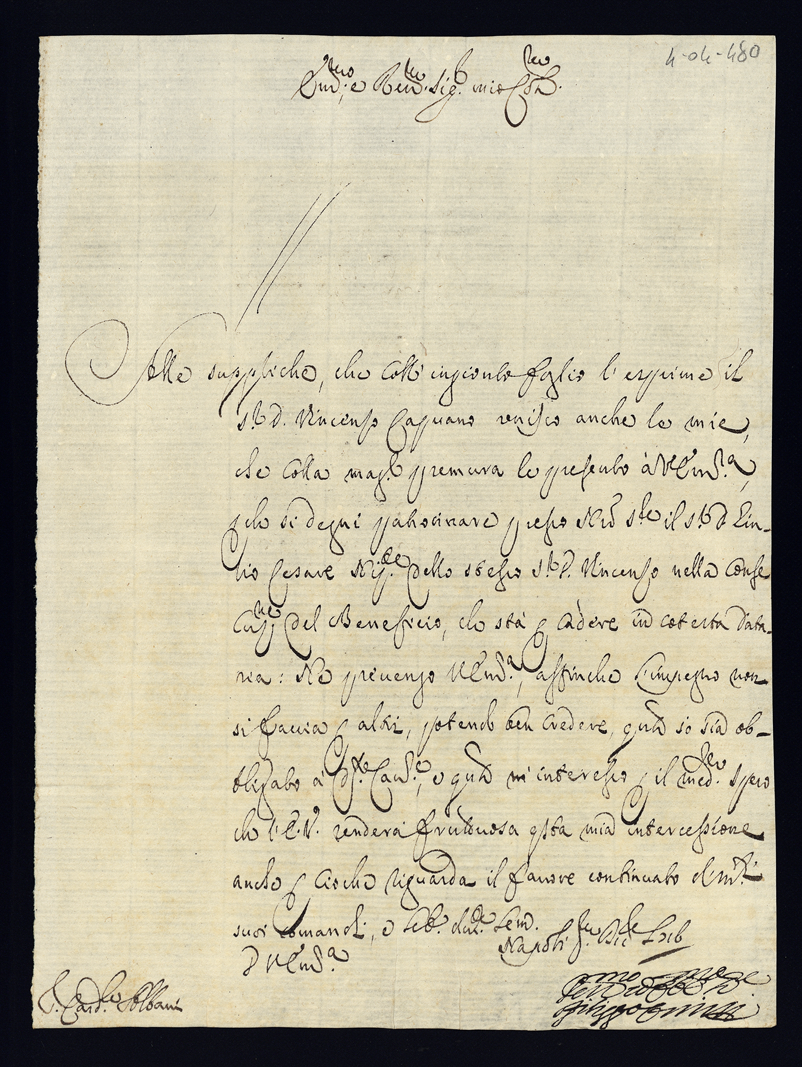 4-04-480
Em̄.mo e Rev.mo Sig.r mio Col.mo
Alle suppliche, che coll'ingionto foglio l'esprime il
s.r D. Vincenzo Capuano unisco anche le mie,
che colla mag.e premura le presento à V. Em̄.za,
p che si degni patrocinare presso s.r il s.r D.
Cesare dello stesso s.r D. Vincenzo nella conse
del Beneficio, che stà p cadere in cotesta Data-
ria: Ne prevengo V. Em̄.za, affinche l'impegno non
si faccia p altri, potendo ben credere, q.to io sia ob-
bligato à Cau.re, e q.to m'interesso p il med.mo spero
che l'E.V. renderà fruttuosa q.sta mia intercessione
anche p cioche riguarda il favore continuato de m.ti
suoi comandi, e
D V. Em̄.za
Napoli
S. Card.le Albani